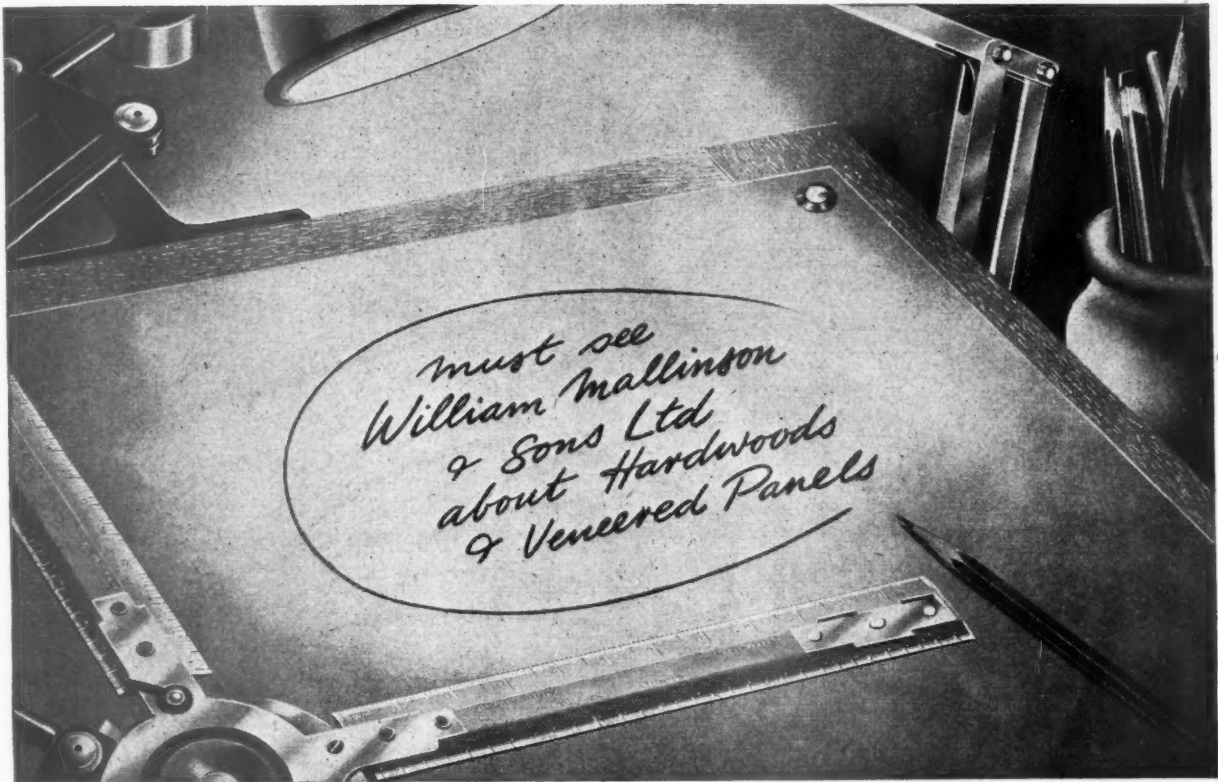 must see
William Mallinson
& Sons Ltd
about Hardwoods
& Veneered Panels